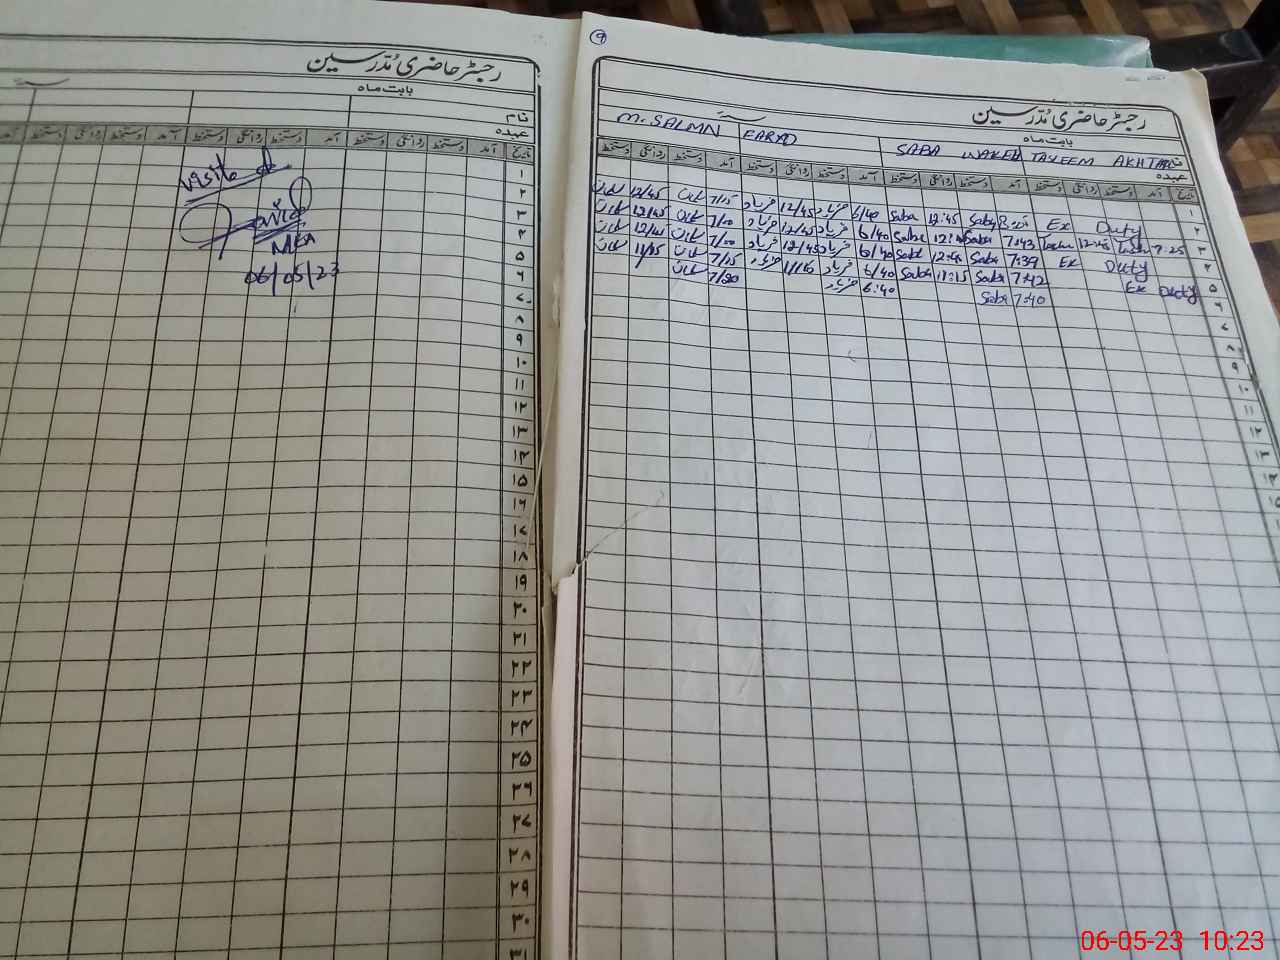 رجسٹر حاضری مُدرسین
بابت ماہ
نام
عہدہ
تاریخ آمد دستخط روانگی دستخط آمد دستخط روانگی دستخط آمد دستخط روانگی دستخط آمد
۱
۲
۳
۴
۵
۶
۷
۸
۹
۱۰
۱۱
۱۲
۱۳
۱۴
۱۵
۱۶
۱۷
۱۸
۱۹
۲۰
۲۱
۲۲
۲۳
۲۴
۲۵
۲۶
۲۷
۲۸
۲۹
۳۰
۳۱
visited
MEA
06/05/23
۹
رجسٹر حاضری مُدرسین
بابت ماہ
M. SALMN FARYAD SABA TASLEEM AKHTAR
عہدہ
تاریخ آمد دستخط روانگی دستخط آمد دستخط روانگی دستخط آمد دستخط روانگی دستخط آمد دستخط روانگی دستخط
۱
12/45 7/15 فریاد 12/45 فریاد 6/40 Saba 12:45 Saba Ex Duty
۲
12/45 7/00 فریاد 12/45 فریاد 6/40 Saba Saba 7:43 7:25
۳
12/45 7/00 فریاد 12/45 فریاد 6/40 Saba Saba 7:39 Ex Duty
۴
7/15 فریاد 6/40 Saba 11:15 Saba 7:42 Ex Duty
۵
7/20 فریاد 6:40 Saba 7:40
۶
۷
۸
۹
۱۰
۱۱
۱۲
۱۳
۱۴
۱۵
06-05-23 10:23